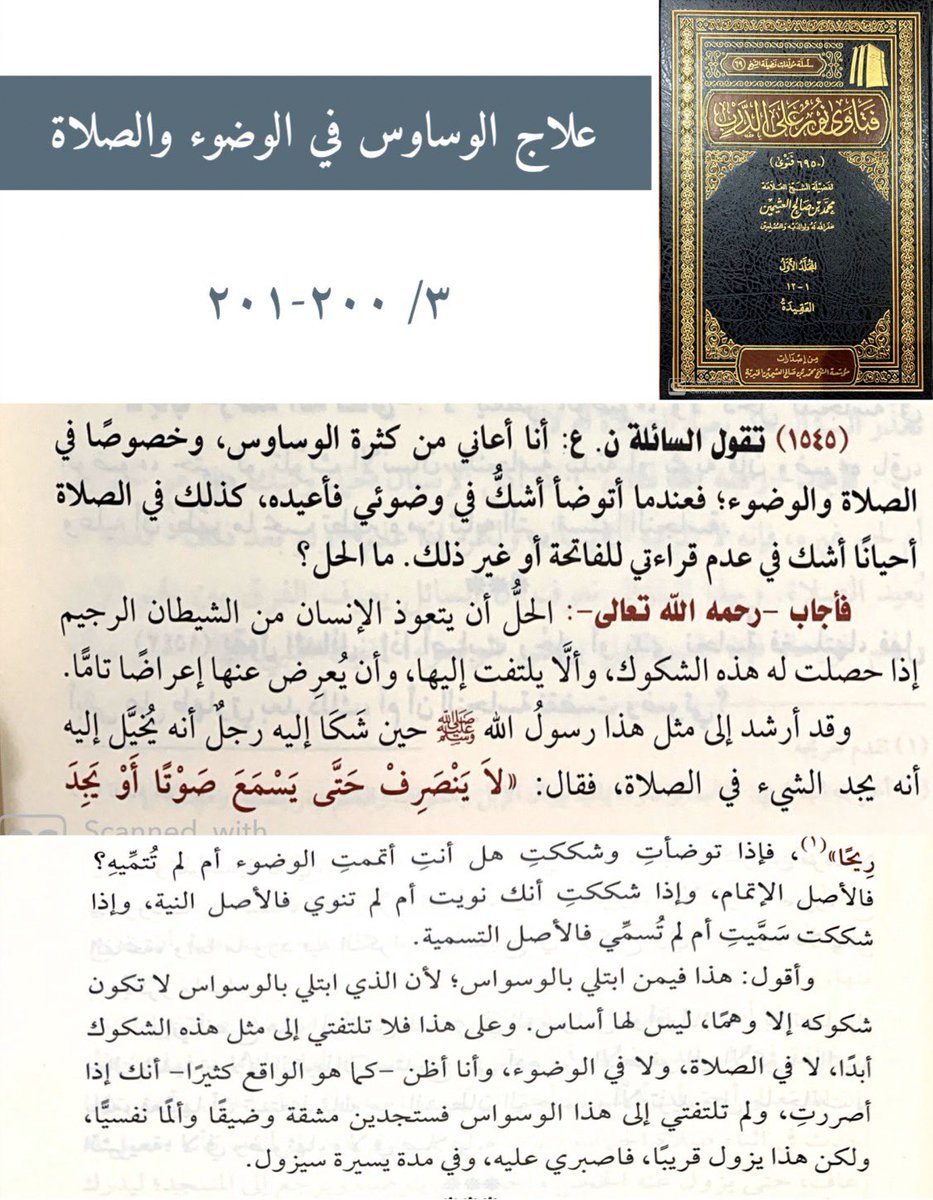 سلسلة مؤلفات فضيلة الشيخ (٦٩)
فتاوى نور على الدرب
(٦٩٥٠ فتوى)
لفضيلة الشيخ العلامة
محمد بن صالح العثيمين
غفر الله له ولوالديه وللمسلمين
المجلد الأول
١ - ١٢
العقيدة
من إصدارات
مؤسسة الشيخ محمد بن صالح العثيمين الخيرية
علاج الوساوس في الوضوء والصلاة
٣/ ٢٠٠-٢٠١
(١٥٤٥) تقول السائلة ن. ع: أنا أعاني من كثرة الوساوس، وخصوصًا في
الصلاة والوضوء؛ فعندما أتوضأ أشكُّ في وضوئي فأعيده، كذلك في الصلاة
أحيانًا أشك في عدم قراءتي للفاتحة أو غير ذلك. ما الحل؟
فأجاب -رحمه الله تعالى-: الحلُّ أن يتعوذ الإنسان من الشيطان الرجيم
إذا حصلت له هذه الشكوك، وألَّا يلتفت إليها، وأن يُعرِض عنها إعراضًا تامًّا.
وقد أرشد إلى مثل هذا رسولُ الله ﷺ حين شَكَا إليه رجلٌ أنه يُخيَّل إليه
أنه يجد الشيء في الصلاة، فقال: «لاَ يَنْصَرِفْ حَتَّى يَسْمَعَ صَوْتًا أَوْ يَجِدَ
Scanned with
رِيحًا»(١)، فإذا توضأتِ وشككتِ هل أنتِ أتممتِ الوضوء أم لم تُتمِّيهِ؟
فالأصل الإتمام، وإذا شككتِ أنك نويت أم لم تنوي فالأصل النية، وإذا
شككت سَمَّيتِ أم لم تُسمِّي فالأصل التسمية.
وأقول: هذا فيمن ابتلي بالوسواس؛ لأن الذي ابتلي بالوسواس لا تكون
شكوكه إلا وهمًا، ليس لها أساس. وعلى هذا فلا تلتفتي إلى مثل هذه الشكوك
أبدًا، لا في الصلاة، ولا في الوضوء، وأنا أظن -كما هو الواقع كثيرًا- أنك إذا
أصررتِ، ولم تلتفتي إلى هذا الوسواس فستجدين مشقة وضيقًا وألمًا نفسيًّا،
ولكن هذا يزول قريبًا، فاصبري عليه، وفي مدة يسيرة سيزول.